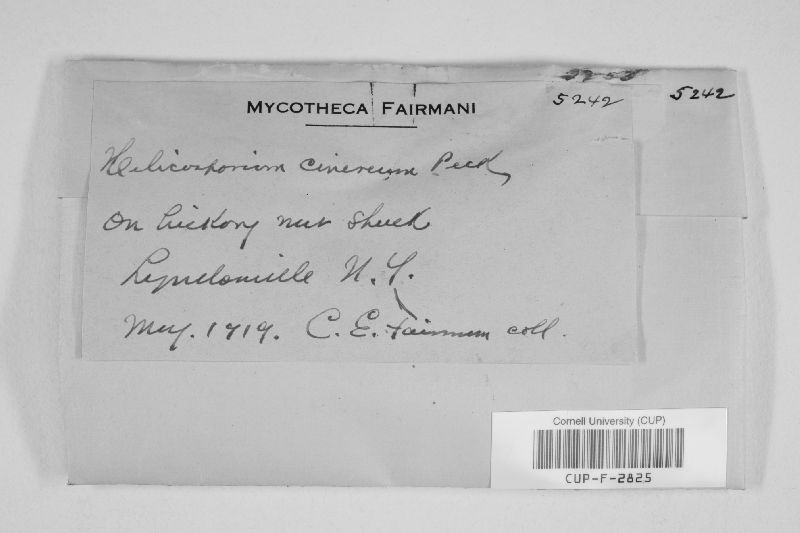 5242
5242
MYCOTHECA FAIRMANI
Helicosporium cinereum Peck
On hickory nut shuck
Lyndonville N.Y.
May. 1919. C. E. Fairman coll.
Cornell University (CUP)
CUP-F-2825